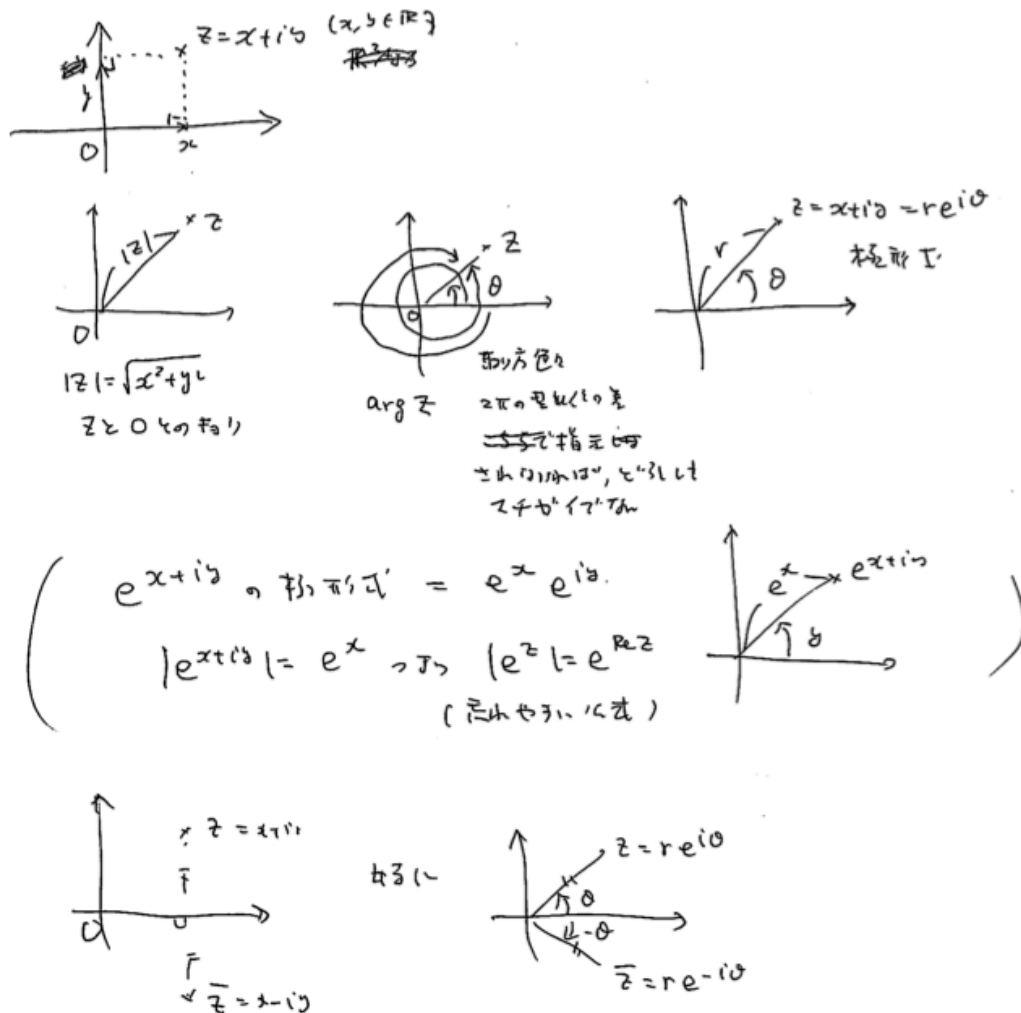 z=x+iy (x,y∈ℝ)
y
O
x
|z|
z
O
|z|=√x²+y²
zと0とのキョリ
z
θ
0
arg z
取り方色々
2πの整数倍の差
で指定
されなければ,どう
マチガイでない
z=x+iy=re^{iθ}
r
θ
極形式
e^{x+iy}の極形式 = e^x e^{iy}.
|e^{x+iy}|= e^x つまり |e^z|=e^{Re z}
(忘れやすい公式)
e^x
e^{x+iy}
y
z=x+iy
O
z̄=x-iy
z=re^{iθ}
θ
-θ
z̄=re^{-iθ}